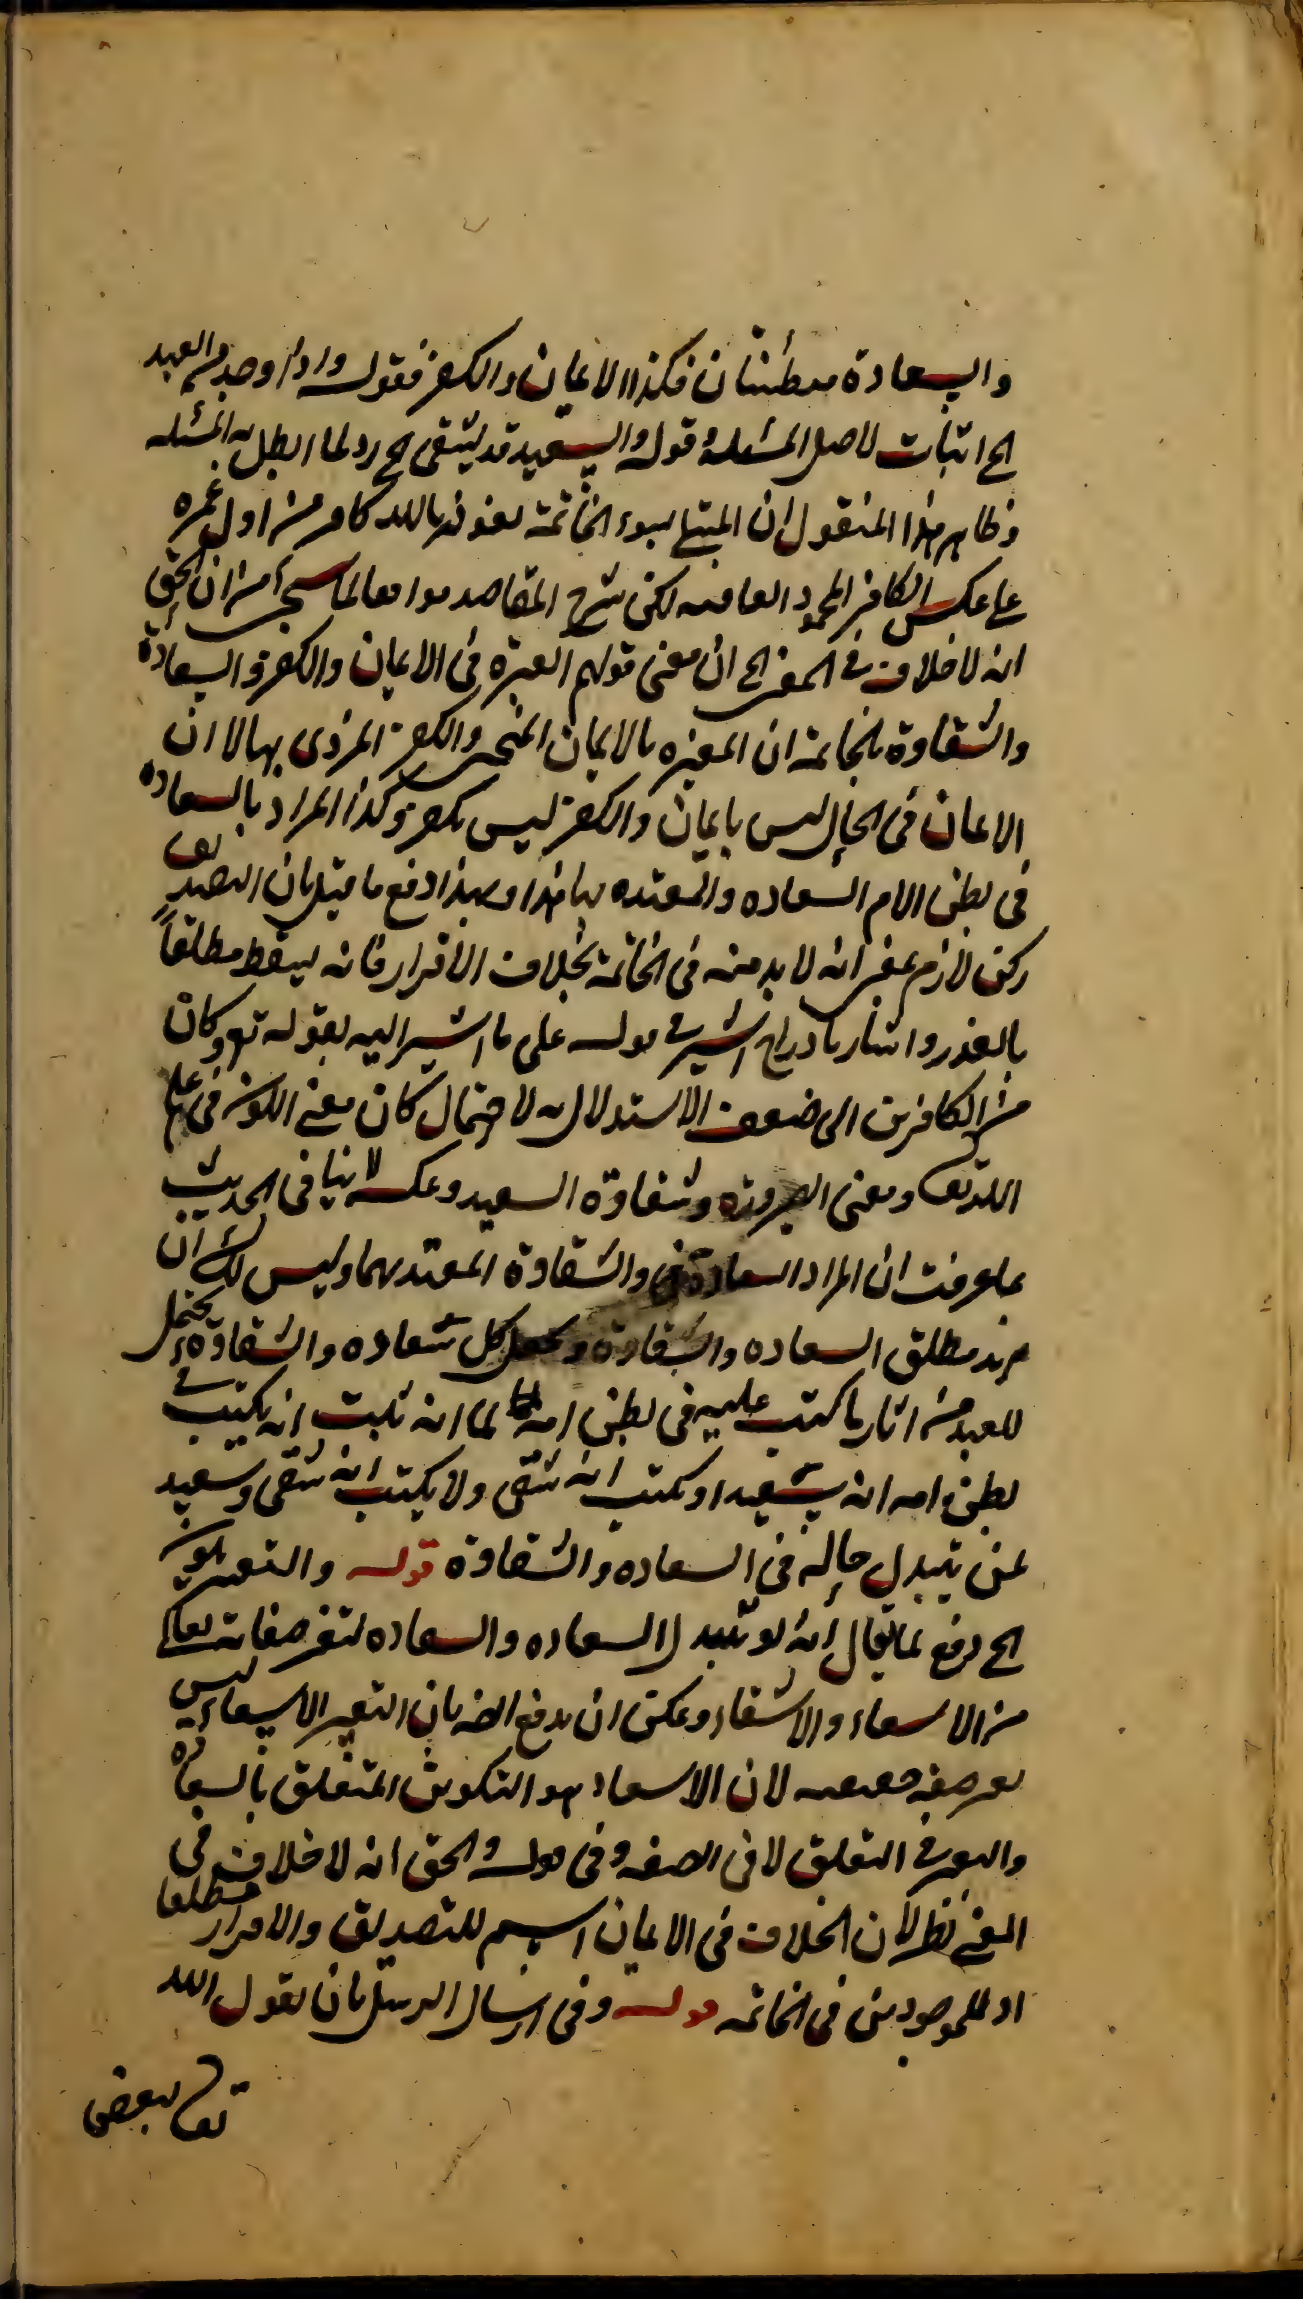 والسعادة مبطنتان فكذا الايمان والكفر فقوله واذا وجد من العبد
الخ اثبات لاصل المسئلة وقوله والسعيد قد يشقى الخ رد لما ابطل به المسئله
وظاهر هذا المنقول ان المبتلى بسوء الخاتمة نعوذ بالله كافر من اول عمره
على عكس الكافر المحمود العاقبه لكن شرح المقاصد موافقا لما سيجئ من ان الحق
انه لا خلاف في المعنى الخ ان معنى قولهم العبرة فى الايمان والكفر والسعادة
والشقاوة بالخاتمة ان العبره بالايمان المنجى والكفر المردى بها لا ان
الايمان فى الحال ليس بايمان والكفر ليس بكفر وكذا المراد بالسعادة
فى بطن الام السعاده والمعتده بها هذا وبهذا دفع ما قيل بان التصديق
ركن لازم بمعنى انه لا بد منه فى الخاتمة بخلاف الاقرار فانه يسقط مطلقاً
بالعذر واشار بادراج اشير في قوله على ما اشير اليه بقوله تع وكان
من الكافرين الى ضعف الاستدلال به لاحتمال كان معنى الكون فى علم
الله تع ومعنى الصيرورة وشقاوة السعيد وعكسه لا ينافى الحديث
بما عرفت ان المراد السعادة والشقاوة المعتد بهما وليس لك ان
تريد مطلق السعاده والشقاوة وتجعل كل سعاده والشقاوة يحتمل
للعبد من اثار ما كتب عليه فى بطن امه لما انه ثبت انه يكتب في
بطن امه انه سعيد او يكتب انه شقى ولا يكتب انه شقى وسعيد
لمن يتبدل حاله فى السعاده والشقاوة قوله والتغير يكون
الخ دفع لما يقال انه لو تبدل السعاده والسعاده لتغير صفاته تعالى
من الاسعاد والاشقاء ويمكن ان يدفع ايضا بان التغير الاسعاد ليس
تغير صفة حقيقيه لان الاسعاد هو التكوين المتعلق بالسعادة
والتغير في التعلق لا فى الصفه وفى قوله والحق انه لا خلاف فى
المعنى نظر لان الخلاف فى الايمان اسم للتصديق والاقرار مطلقا
او للموجودين فى الخاتمه قوله وفى ارسال الرسل بان يقول الله
تعالى لبعض